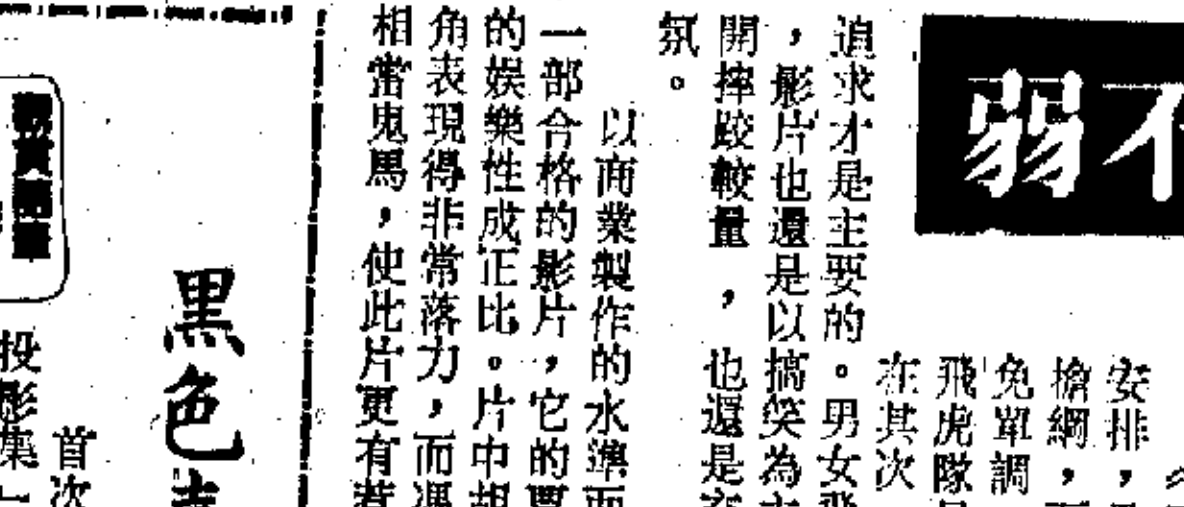 弱不
安排，
槍綱，
免單調，
飛虎隊
在其次
追求才是主要的。男女飛
，影片也還是以搞笑為主
開摔跤較量，也還是
氛。
以商業製作的水準而
一部合格的影片，它的
的娛樂性成正比。片中胡
角表現得非常落力，而馮
相當鬼馬，使此片更有惹
黑色
首次
投影集